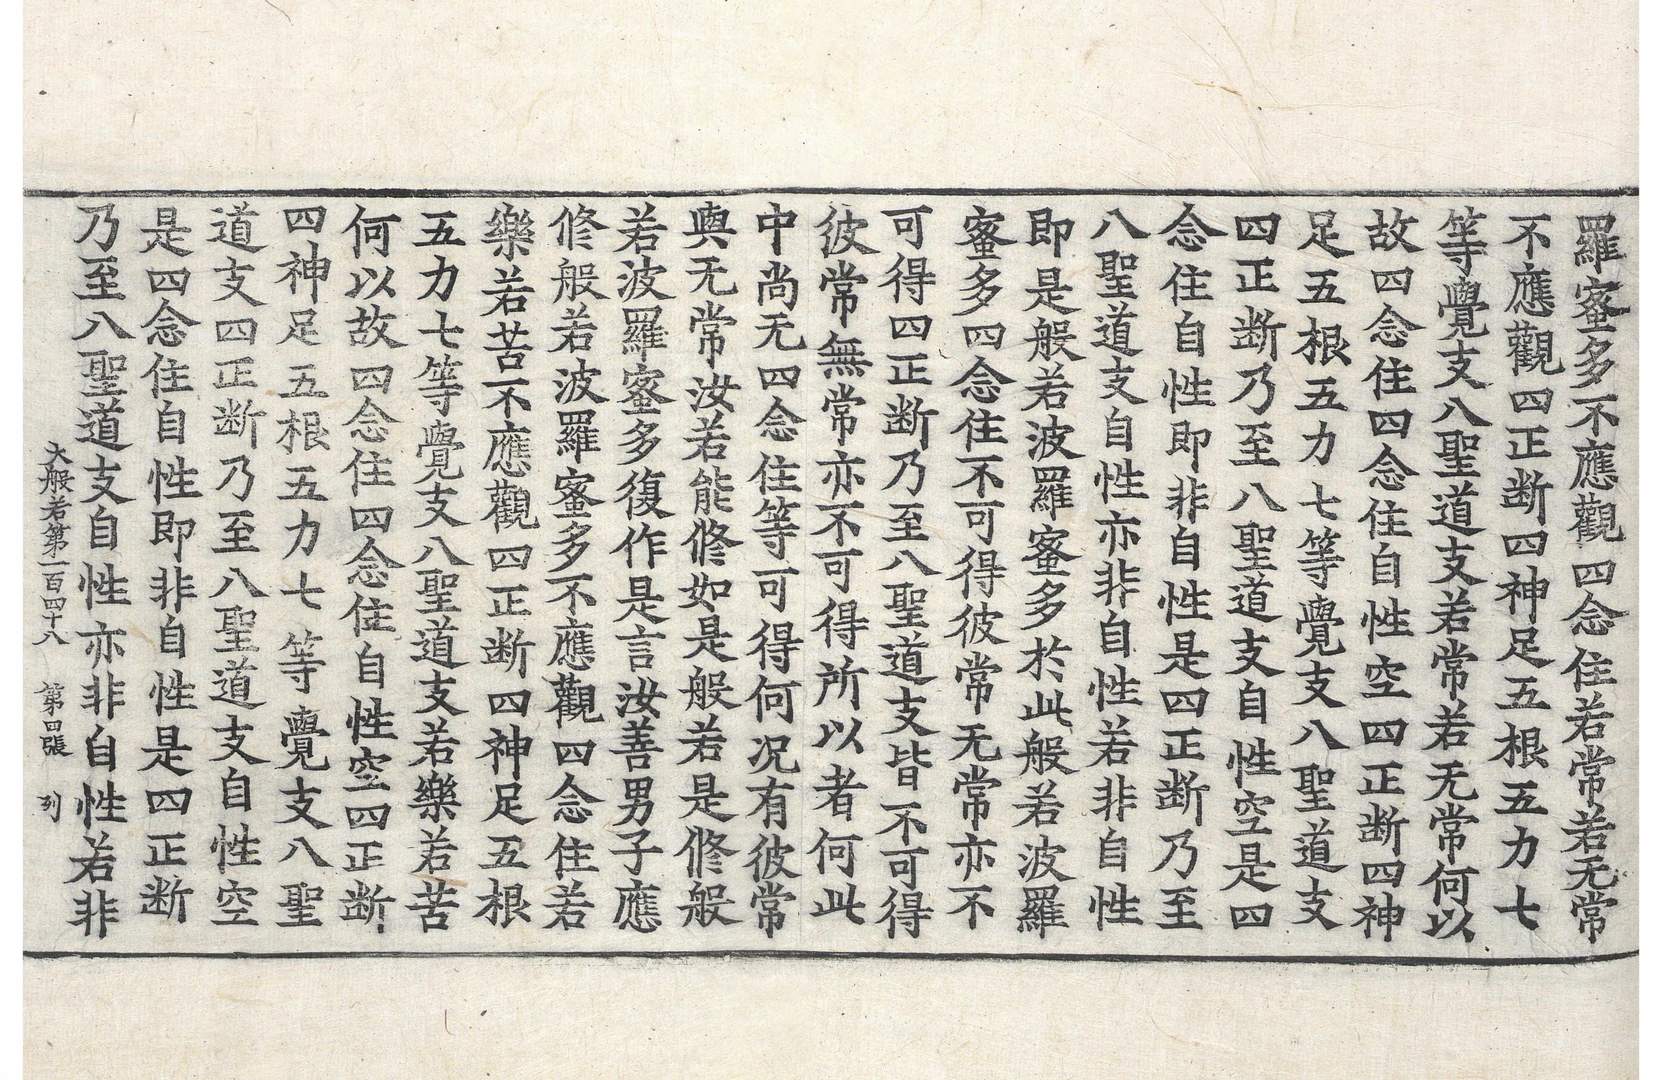 羅蜜多不應觀四念住若常若无常
不應觀四正断四神足五根五力七
等覺支八聖道支若常若无常何以
故四念住四念住自性空四正断四神
足五根五力七等覺支八聖道支
四正断乃至八聖道支自性空是四
念住自性即非自性是四正断乃至
八聖道支自性亦非自性若非自性
即是般若波羅蜜多於此般若波羅
蜜多四念住不可得彼常无常亦不
可得四正断乃至八聖道支皆不可得
彼常無常亦不可得所以者何此
中尚无四念住等可得何况有彼常
與无常汝若能修如是般若是修般
若波羅蜜多復作是言汝善男子應
修般若波羅蜜多不應觀四念住若
樂若苦不應觀四正断四神足五根
五力七等覺支八聖道支若樂若苦
何以故四念住四念住自性空四正断
四神足五根五力七等覺支八聖
道支四正断乃至八聖道支自性空
是四念住自性即非自性是四正断
乃至八聖道支自性亦非自性若非
大般若第一百四十八 第四張 列